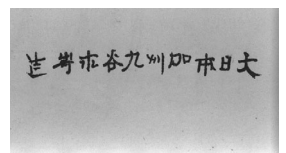 大日本加州九谷造